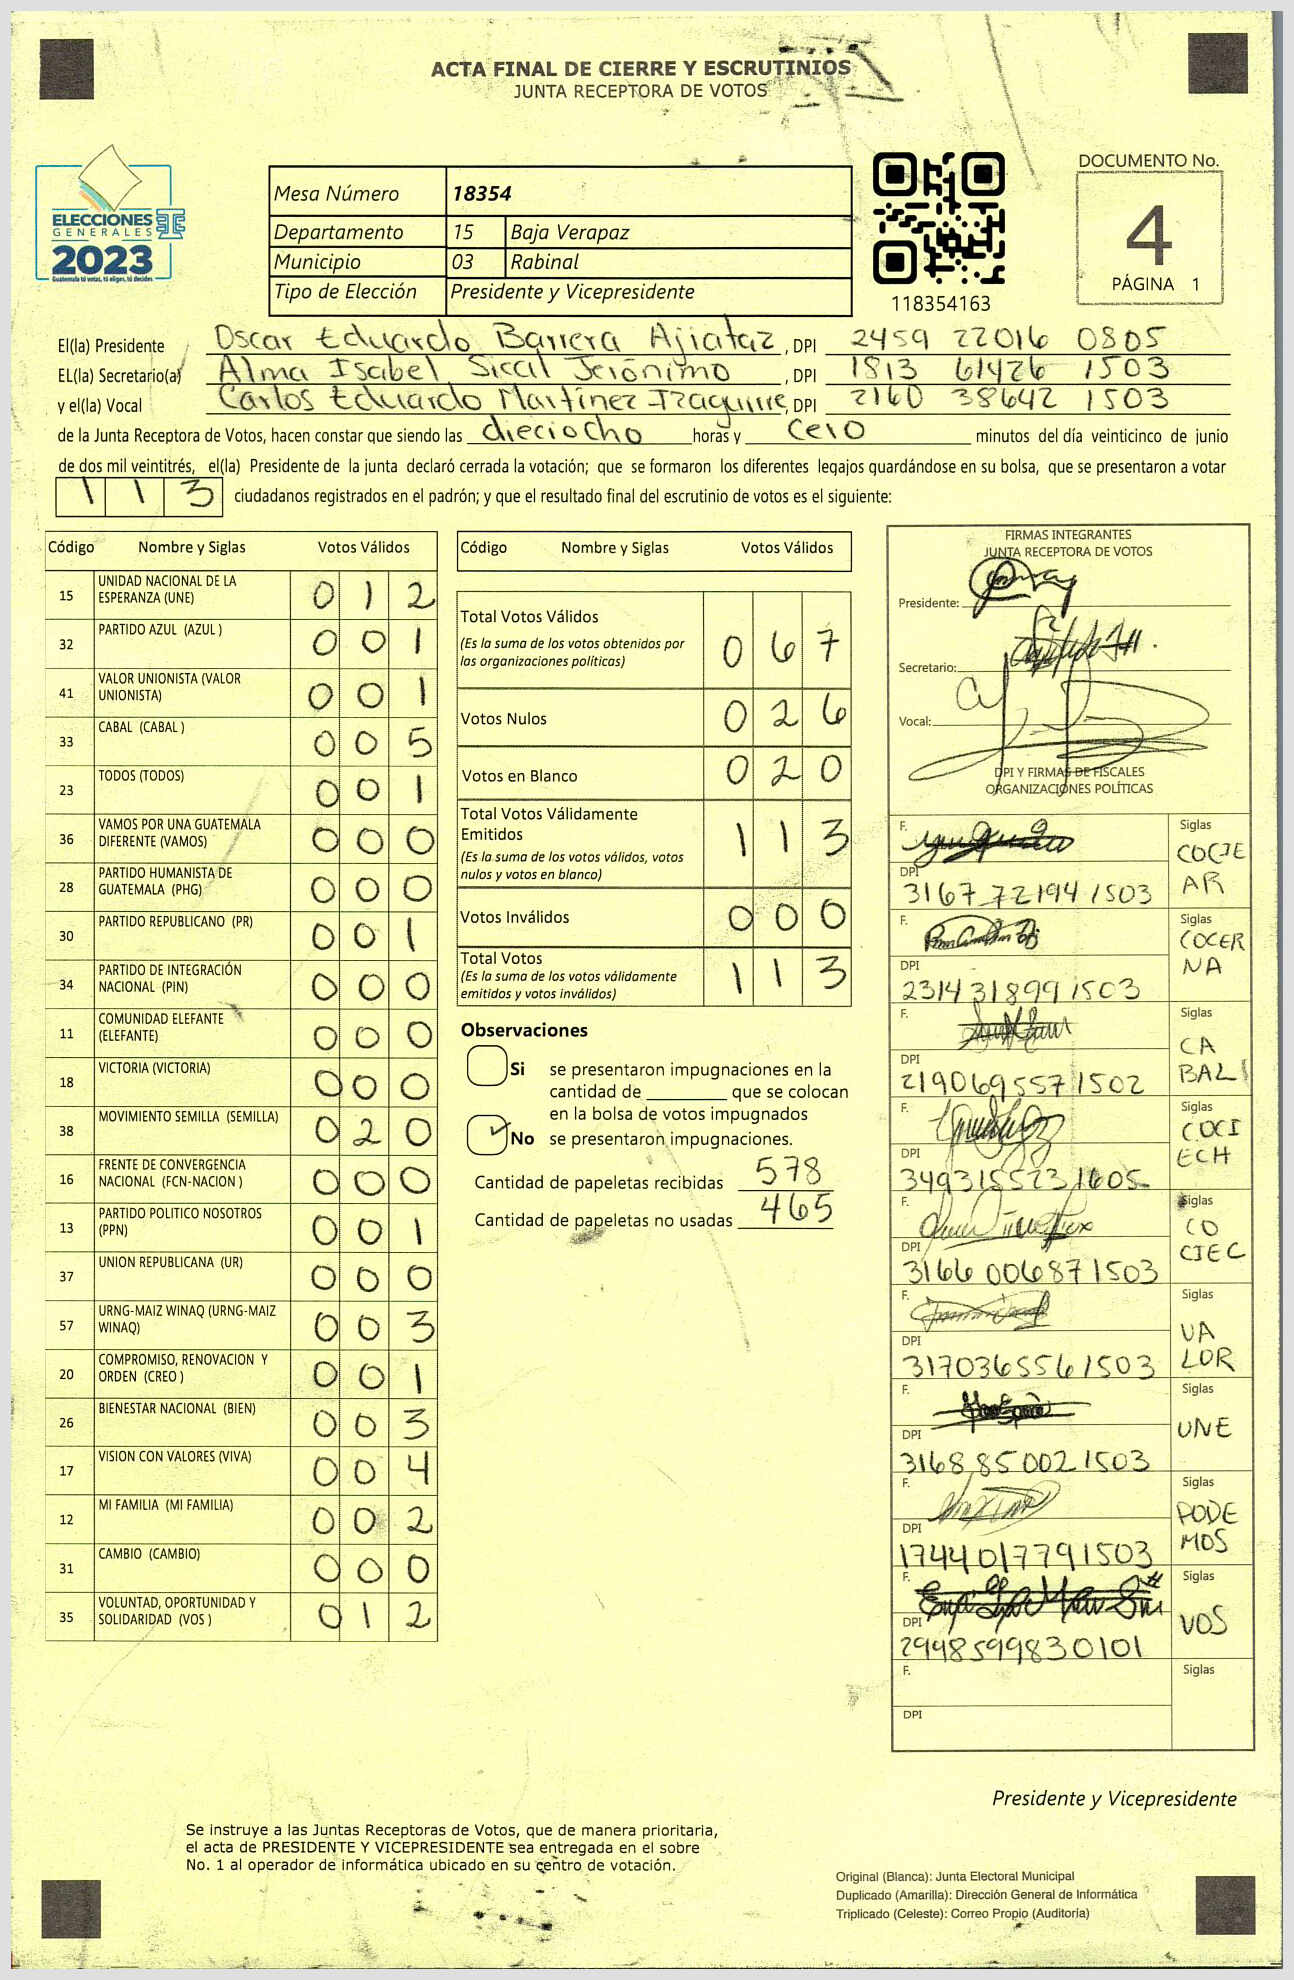 ACTA FINAL DE CIERRE Y ESCRUTINIOS
JUNTA RECEPTORA DE VOTOS
ELECCIONES
GENERALES
2023
Guatemala tú votas, tú eliges, tú decides
Mesa Número 18354
Departamento 15 Baja Verapaz
Municipio 03 Rabinal
Tipo de Elección Presidente y Vicepresidente
118354163
DOCUMENTO No.
4
PÁGINA 1
El(la) Presidente Oscar Eduardo Barrera Ajiataz, DPI 2459 22016 0805
EL(la) Secretario(a) Alma Isabel Sical Jerónimo, DPI 1813 61426 1503
y el(la) Vocal Carlos Eduardo Martínez Izaguirre, DPI 2160 38642 1503
de la Junta Receptora de Votos, hacen constar que siendo las dieciocho horas y cero minutos del día veinticinco de junio
de dos mil veintitrés, el(la) Presidente de la junta declaró cerrada la votación; que se formaron los diferentes legajos guardándose en su bolsa, que se presentaron a votar
113 ciudadanos registrados en el padrón; y que el resultado final del escrutinio de votos es el siguiente:
Código Nombre y Siglas Votos Válidos
15 UNIDAD NACIONAL DE LA ESPERANZA (UNE) 012
32 PARTIDO AZUL (AZUL ) 001
41 VALOR UNIONISTA (VALOR UNIONISTA) 001
33 CABAL (CABAL ) 005
23 TODOS (TODOS) 001
36 VAMOS POR UNA GUATEMALA DIFERENTE (VAMOS) 000
28 PARTIDO HUMANISTA DE GUATEMALA (PHG) 000
30 PARTIDO REPUBLICANO (PR) 001
34 PARTIDO DE INTEGRACIÓN NACIONAL (PIN) 000
11 COMUNIDAD ELEFANTE (ELEFANTE) 000
18 VICTORIA (VICTORIA) 000
38 MOVIMIENTO SEMILLA (SEMILLA) 020
16 FRENTE DE CONVERGENCIA NACIONAL (FCN-NACION ) 000
13 PARTIDO POLITICO NOSOTROS (PPN) 001
37 UNION REPUBLICANA (UR) 000
57 URNG-MAIZ WINAQ (URNG-MAIZ WINAQ) 003
20 COMPROMISO, RENOVACION Y ORDEN (CREO ) 001
26 BIENESTAR NACIONAL (BIEN) 003
17 VISION CON VALORES (VIVA) 004
12 MI FAMILIA (MI FAMILIA) 002
31 CAMBIO (CAMBIO) 000
35 VOLUNTAD, OPORTUNIDAD Y SOLIDARIDAD (VOS ) 012
Código Nombre y Siglas Votos Válidos
Total Votos Válidos 067
(Es la suma de los votos obtenidos por
las organizaciones políticas)
Votos Nulos 026
Votos en Blanco 020
Total Votos Válidamente
Emitidos 113
(Es la suma de los votos válidos, votos
nulos y votos en blanco)
Votos Inválidos 000
Total Votos 113
(Es la suma de los votos válidamente
emitidos y votos inválidos)
Observaciones
Si se presentaron impugnaciones en la
cantidad de ________ que se colocan
en la bolsa de votos impugnados
✓ No se presentaron impugnaciones.
Cantidad de papeletas recibidas 578
Cantidad de papeletas no usadas 465
FIRMAS INTEGRANTES
JUNTA RECEPTORA DE VOTOS
Presidente:
Secretario:
Vocal:
DPI Y FIRMAS DE FISCALES
ORGANIZACIONES POLÍTICAS
F. Siglas
COCIE
AR
DPI
3167 72194 1503
F. Siglas
COCER
NA
DPI
2314318991503
F. Siglas
CA
BAL
DPI
2190695571502
F. Siglas
COCI
ECH
DPI
3493155231605
F. Siglas
CO
CIEC
DPI
3166006871503
F. Siglas
VA
LOR
DPI
3170365561503
F. Siglas
UNE
DPI
3168850021503
F. Siglas
PODE
MOS
DPI
1744017791503
F. Siglas
VOS
DPI
2998599830101
F. Siglas
DPI
Presidente y Vicepresidente
Se instruye a las Juntas Receptoras de Votos, que de manera prioritaria,
el acta de PRESIDENTE Y VICEPRESIDENTE sea entregada en el sobre
No. 1 al operador de informática ubicado en su centro de votación.
Original (Blanca): Junta Electoral Municipal
Duplicado (Amarilla): Dirección General de Informática
Triplicado (Celeste): Correo Propio (Auditoría)